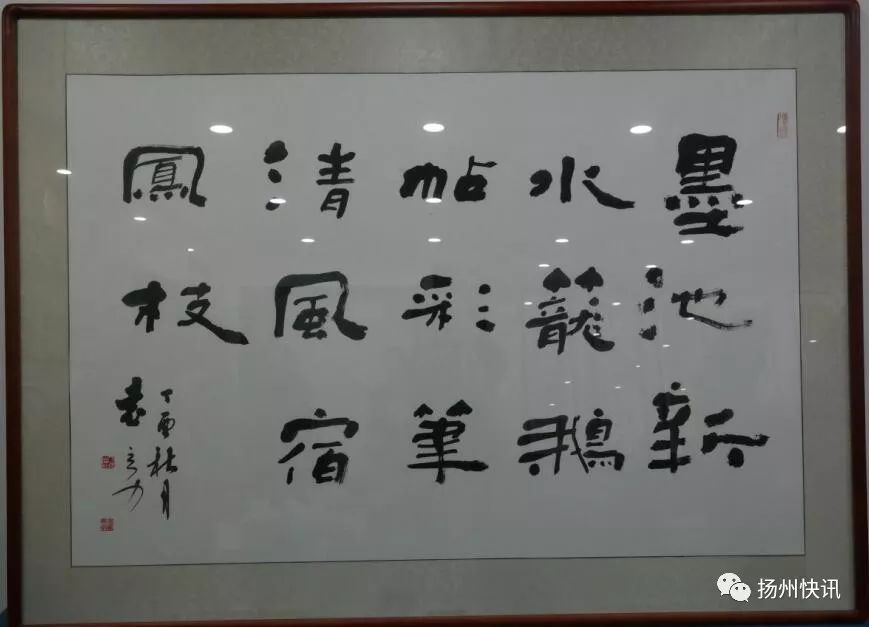 墨池新
水籠鵝
帖彩筆
清風宿
鳳枝
丁酉秋月
扬州快讯